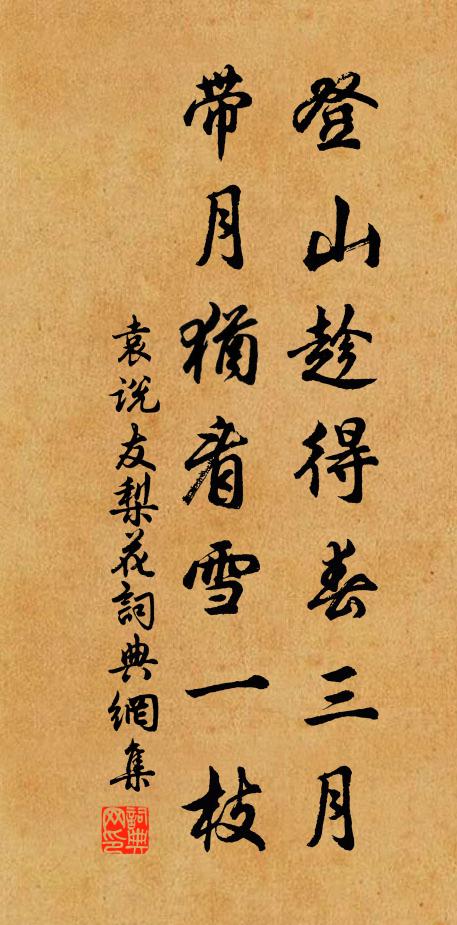 登山趁得春三月
带月猶看雪一枝
袁说友梨花詞典網集
詞典网印